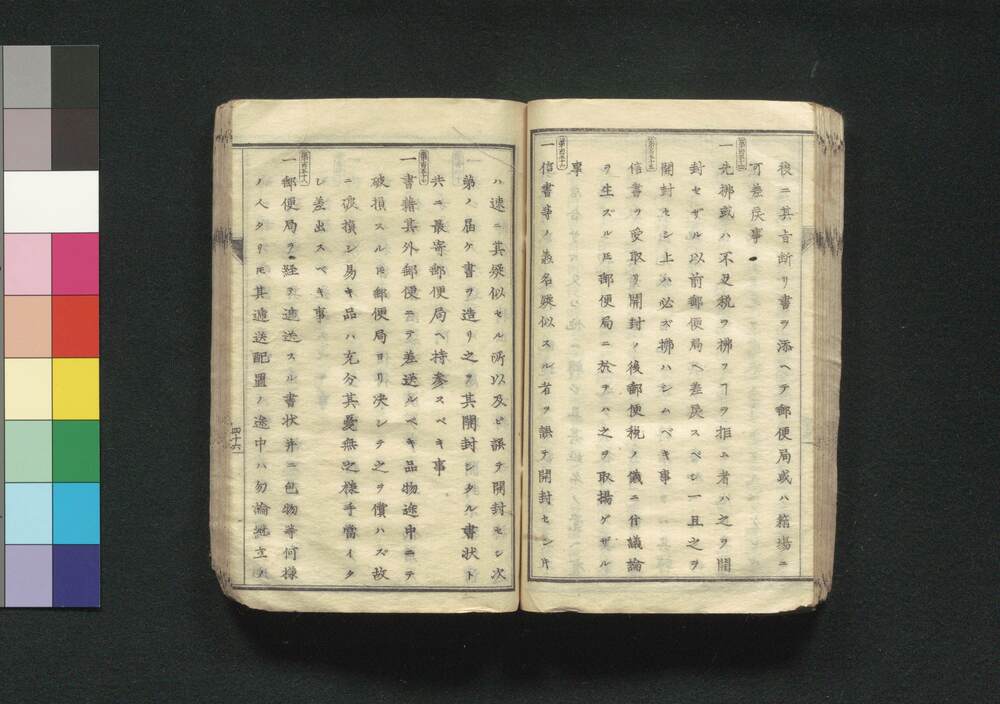 後ニ其旨断リ書ヲ添ヘテ郵便局或ハ箱場ニ
可差戻事
第百五十四
一先拂或ハ不足税ヲ拂フヿヲ拒ム者ハ之ヲ開
封セザル以前郵便局ヘ差戻スベシ一旦之ヲ
開封セシ上ハ必ズ拂ハシムベキ事
第百五十五
信書ヲ受取リ開封ノ後郵便税ノ儀ニ付議論
ヲ生ズルㇳモ郵便局ニ於テハ之ヲ取揚ゲザル
事
第百五十六
一信書等ノ表名疑似スル者ヲ誤テ開封セシ片
ハ速ニ其疑似セル所以及ビ誤テ開封セシ次
第ノ届ケ書ヲ造リ之ヲ其開封シタル書状ト
共ニ最寄郵便局ヘ持参スベキ事
第百五十七
一書籍其外郵便ニテ差送ルベキ品物途中ニテ
破損スルㇳモ郵便局ヨリ决シテ之ヲ償ハズ故
ニ破損シ易キ品ハ充分其憂無之様手當イタ
シ差出スベキ事
第百五十八
一郵便局ヲ経テ逓送スル書状并ニ包物等何様
ノ人タリㇳモ其逓送配置ノ途中ハ勿論
四十六